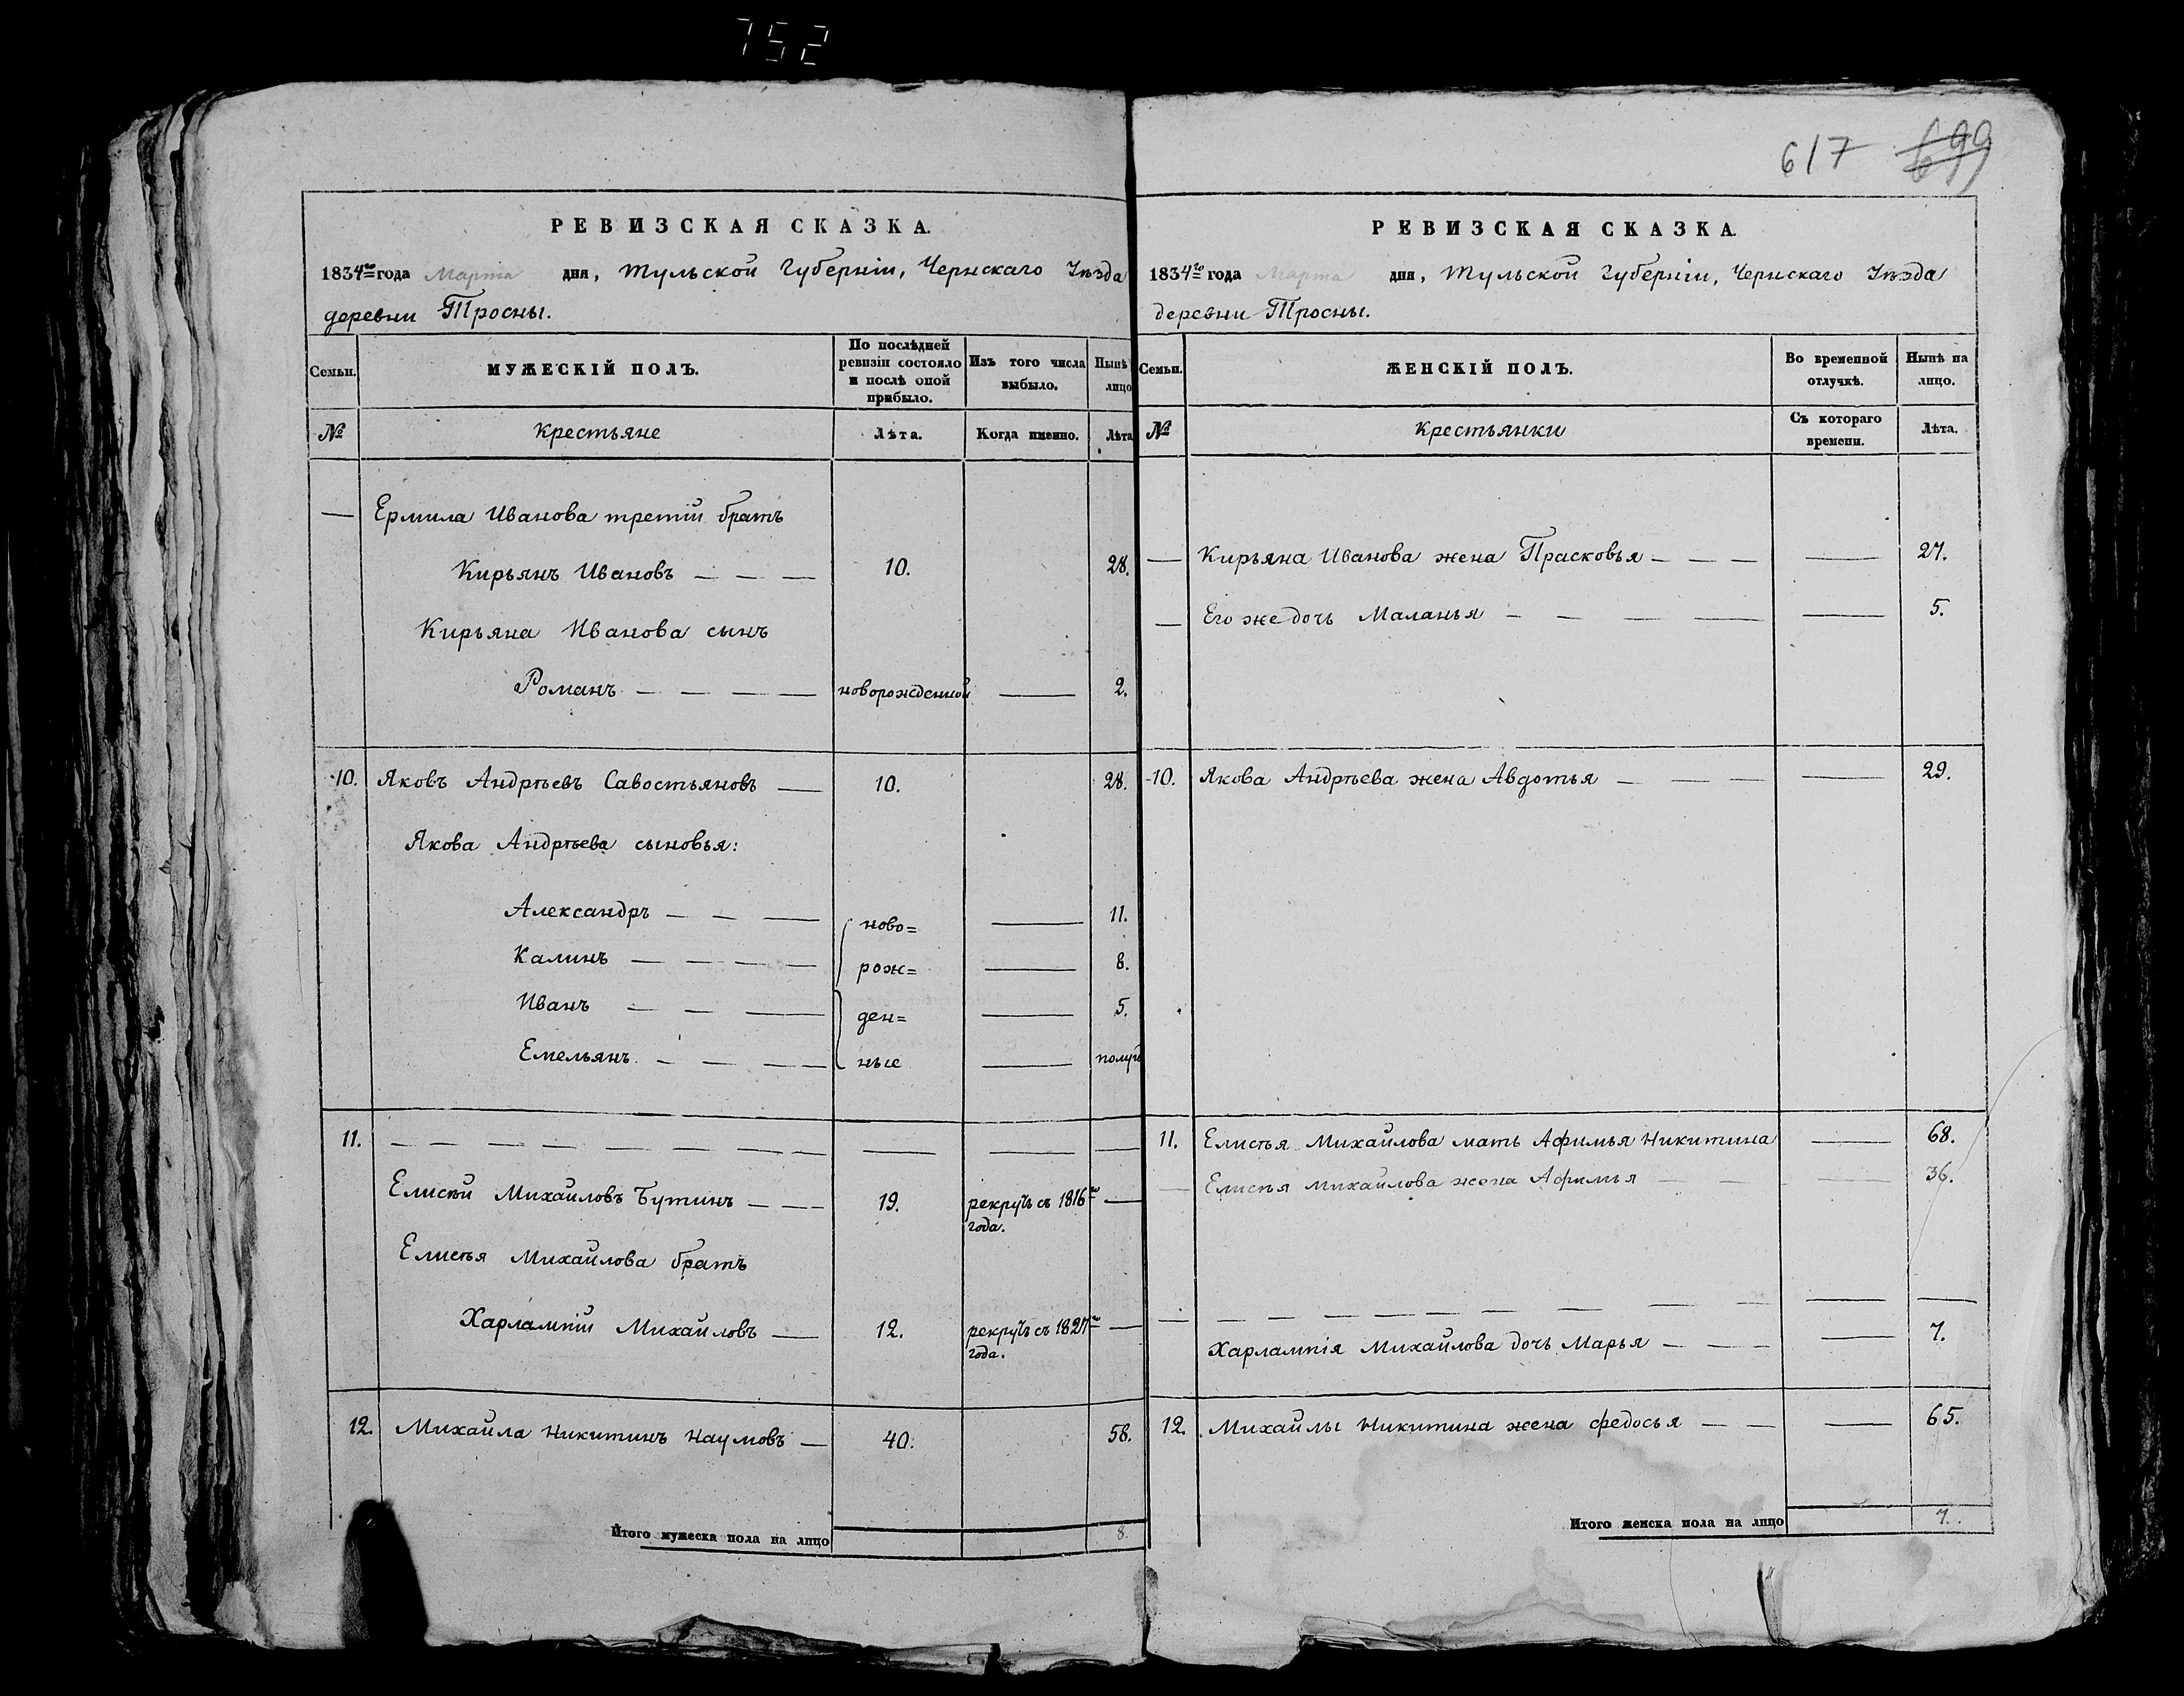 752
617 699
РЕВИЗСКАЯ СКАЗКА.
1834го года Марта дня, Тульской Губерніи, Чернскаго Уѣзда
деревни Тросны.
Семьи. МУЖЕСКІЙ ПОЛЪ. По послѣдней ревизіи состояло и послѣ оной прибыло. Изъ того числа выбыло. Нынѣ лицо
№ Крестьяне Лѣта. Когда именно. Лѣта
— Ермила Иванова третій братъ
Кирьянъ Ивановъ — — — 10. 28.
Кирьяна Иванова сынъ
Романъ — — — — новорожденной — 2.
10. Яковъ Андрѣевъ Савостьяновъ — 10. 28.
Якова Андрѣева сыновья:
Александръ — — — ново= — 11.
Калинъ — — — — рож= — 8.
Иванъ — — — ден= — 5.
Емельянъ — — — — ные — полуг
11. — — — — — — — — — — —
Елисѣй Михайловъ Бутинъ — — — 19. рекрутъ съ 1816го года. —
Елисѣя Михайлова братъ
Харлампій Михайловъ — 12. рекрутъ съ 1827го года. —
12. Михайла Никитинъ Наумовъ — 40. 58.
Итого мужеска пола на лицо 8.
РЕВИЗСКАЯ СКАЗКА.
1834го года Марта дня, Тульской Губерніи, Чернскаго Уѣзда
деревни Тросны.
Семьи. ЖЕНСКІЙ ПОЛЪ. Во временной отлучкѣ. Нынѣ на лицо.
№ Крестьянки Съ котораго времени. Лѣта.
— Кирьяна Иванова жена Прасковья — — — — 27.
— Его же дочь Маланья — — — — — 5.
10. Якова Андрѣева жена Авдотья — — — — 29.
11. Елисѣя Михайлова мать Афимья Никитина — 68.
— Елисѣя Михайлова жена Афимья — — — 36.
— — — — — — — — — —
Харлампія Михайлова дочь Марья — — — — 7.
12. Михайлы Никитина жена Федосья — — — 65.
Итого женска пола на лицо 7.